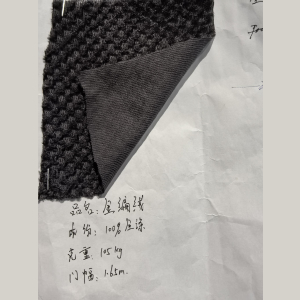 品名: 金编线
布份: 100%全涤
克重: 105kg
门幅: 1.65m.